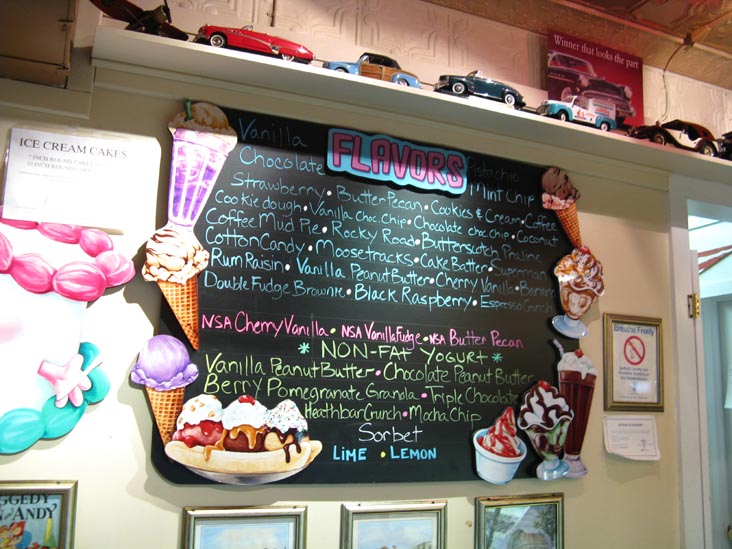 Winner that looks the part
ICE CREAM CAKES
7 INCH ROUND CAKE
10 INCH ROUND CAKE
FLAVORS
Vanilla Pistachio
Chocolate Mint Chip
Strawberry • Butter Pecan • Cookies & Cream • Coffee
Cookie dough • Vanilla choc. Chip • Chocolate choc chip • Coconut
Coffee Mud Pie • Rocky Road • Butterscotch Praline
Cotton Candy • Moosetracks • Cake Batter • Superman
Rum Raisin • Vanilla Peanut Butter • Cherry Vanilla • Banana
Double Fudge Brownie • Black Raspberry • Espresso Crunch
NSA Cherry Vanilla • NSA Vanilla Fudge • NSA Butter Pecan
* NON-FAT YOGURT *
Vanilla Peanut Butter • Chocolate Peanut Butter
Berry Pomegranate Granola • Triple Chocolate
Heathbar Crunch • Mocha Chip
Sorbet
LIME • LEMON
Breathe Freely
GGEDY
ANDY